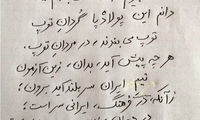 دانم این پولاد پا گردانِ توپ
توپ می‌بندند، در میدانِ توپ.
هر چه پیش آید، بدان، زین آزمون
تیمِ ایران سر بلند آید برون!
زآنکه در فرهنگِ ایرانی سر است؛